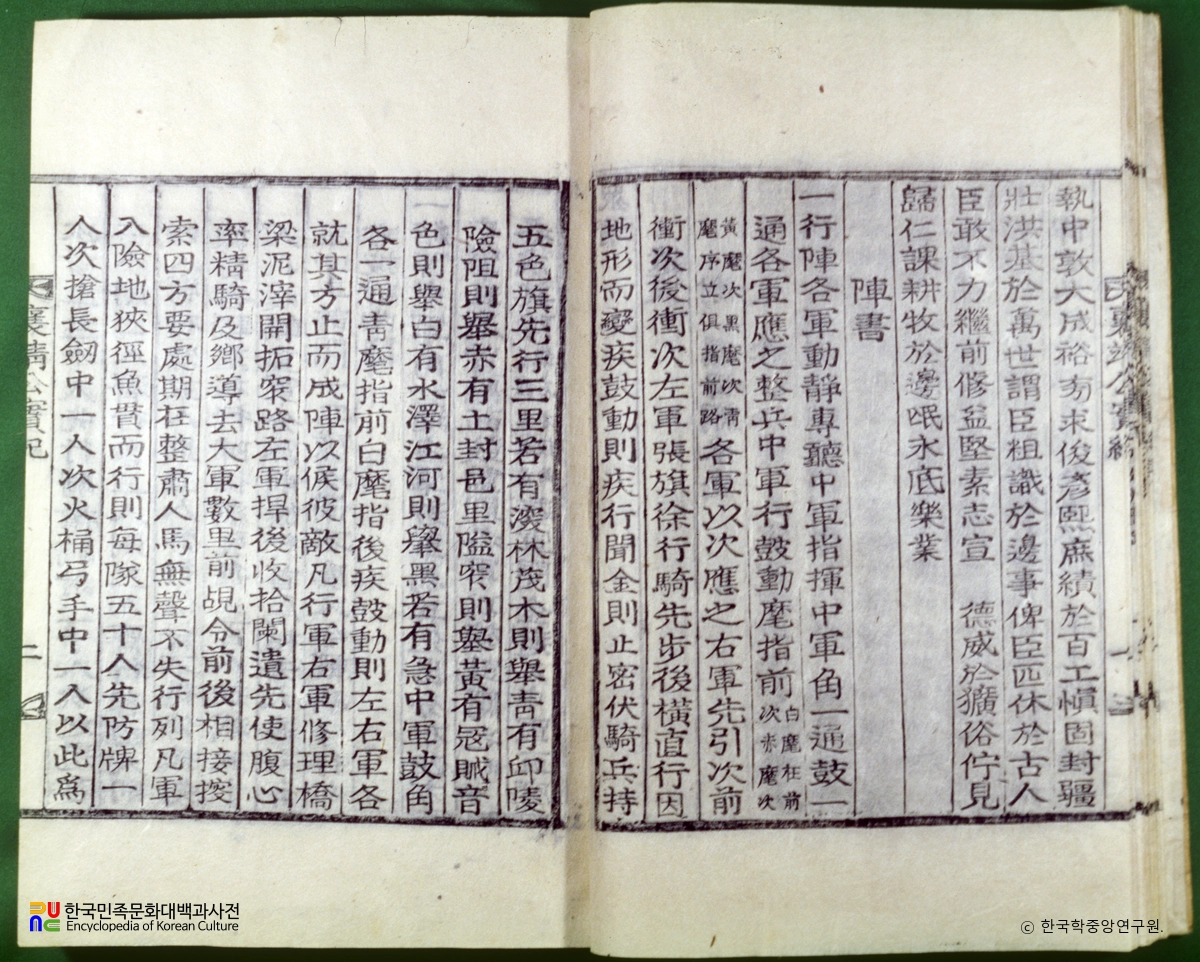 執中敦大成裕旁求俊彥熙庶績於百工愼固封疆
壯洪基於萬世謂臣粗識於邊事俾臣匹休於古人
臣敢不力繼前修益堅素志宣 德威於獷俗佇見
歸仁課耕牧於邊氓永底樂業
陣書
一行陣各軍動靜專聽中軍指揮中軍角一通鼓一
通各軍應之整兵中軍行鼓動麾指前白麾在前
次赤麾次
黃麾次黑麾次靑
麾序立俱指前路各軍以次應之右軍先引次前
衝次後衝次左軍張旗徐行騎先步後橫直行因
地形而變疾鼓動則疾行聞金則止密伏騎兵持
五色旗先行三里若有深林茂木則擧靑有丘陵
險阻則擧赤有土封邑里隘窄則擧黃有冦賊音
色則擧白有水澤江河則擧黑若有急中軍鼓角
各一通靑麾指前白麾指後疾鼓動則左右軍各
就其方止而成陣以候彼敵凡行軍右軍修理橋
梁泥濘開拓窄路左軍捍後收拾闌遺先使腹心
率精騎及鄕導去大軍數里前覘令前後相接按
索四方要處期在整肅人馬無聲不失行列凡軍
入險地狹徑魚貫而行則每隊五十人先防牌一
人次搶長劒中一人次火桶弓手中一人以此爲
襄靖公實紀
二
한국민족문화대백과사전
Encyclopedia of Korean Culture
ⓒ 한국학중앙연구원.